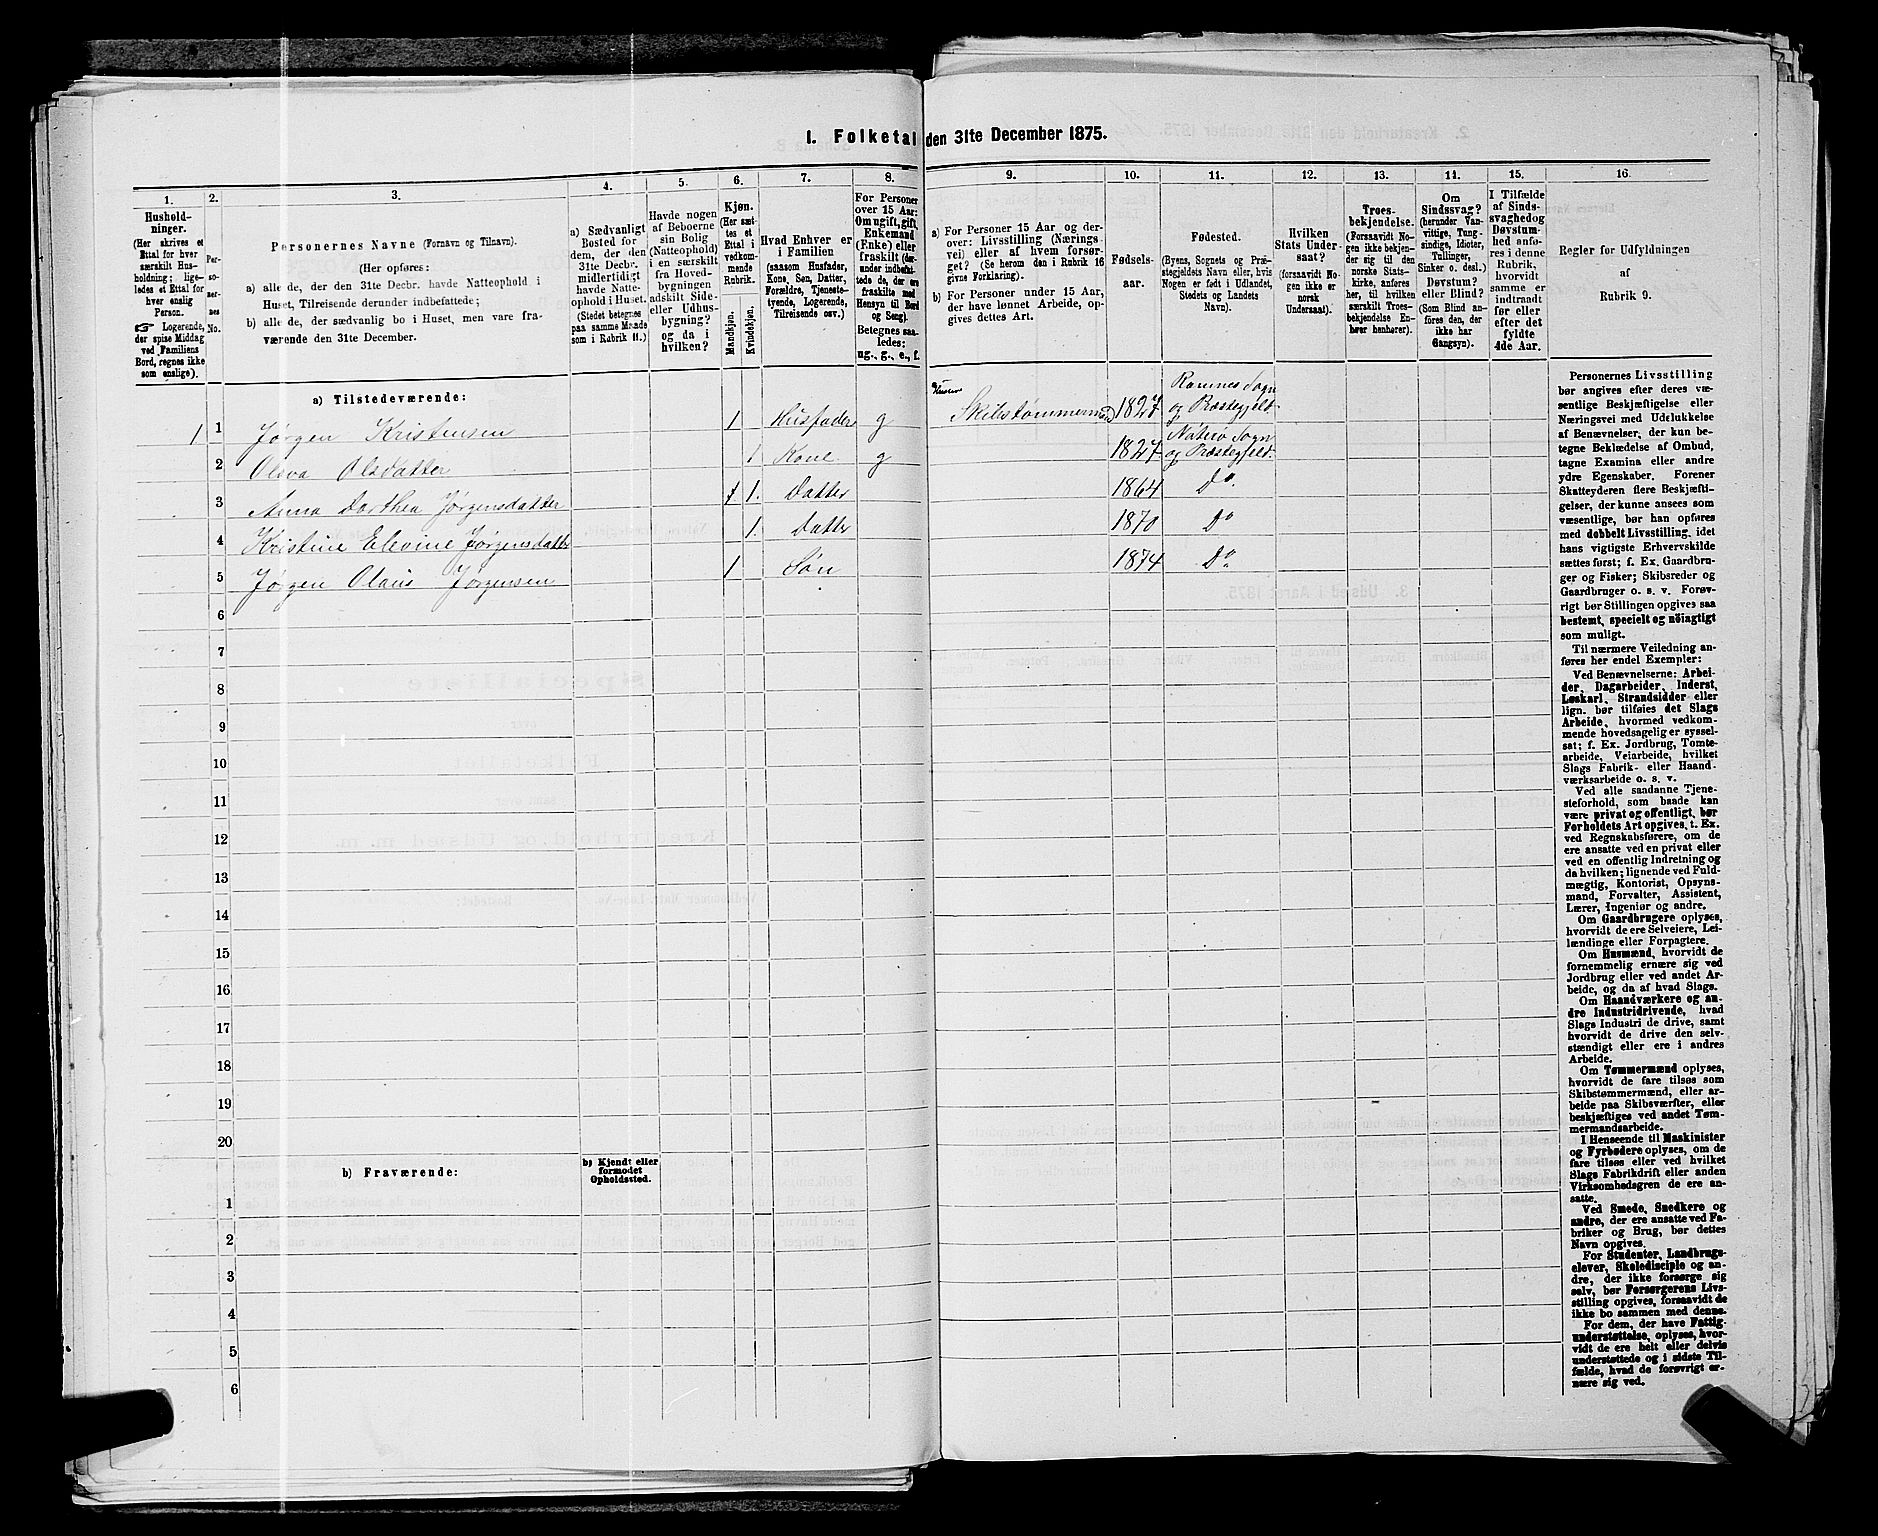 I. Folketal den 31te December 1875.
1.
2.
3.
4.
5.
6.
7.
8.
9.
10.
11.
12.
13.
14.
15.
16.
Hushold-
ninger.
(Her skrives et
Ettal for hver
særskilt Hus-
holdning; lige-
ledes et Ettal for
hver enslig
Person.
☞ Logerende,
der spise Middag
ved Familiens
Bord, regnes ikke
som enslige).
Per-
so-
ner-
nes
No.
Personernes Navne (Fornavn og Tilnavn).
(Her opføres:
a) alle de, der den 31te Decbr. havde Natteophold i
Huset, Tilreisende derunder indbefattede;
b) alle de, der sædvanlig bo i Huset, men vare fra-
værende den 31te December.
a) Sædvanligt
Bosted for
dem, der den
31te Decbr.
midlertidigt
havde Natte-
ophold i Huset.
(Stedet betegnes
paa samme Maade
som i Rubrik 11.)
Havde nogen
af Beboerne
sin Bolig
(Natteophold)
i en særskilt
fra Hoved-
bygningen
adskilt Side-
eller Udhus-
bygning?
og da i
hvilken?
Kjøn.
(Her sæt-
tes et
Ettal i
vedkom-
mende
Rubrik.
Mandkjøn.
Kvindekjøn.
Hvad Enhver er
i Familien
(saasom Husfader,
Kone, Søn, Datter,
Forældre, Tjeneste-
tyende, Logerende,
Tilreisende osv.)
For Personer
over 15 Aar:
Om ugift, gift,
Enkemand
(Enke) eller
fraskilt (der-
under indbefat-
tede de, der ere
fraskilte med
Hensyn til Bord
og Seng).
Betegnes saa-
ledes:
ug., g., e., f.
a) For Personer 15 Aar og der-
over: Livsstilling (Nærings-
vei) eller af hvem forsør-
get? (Se herom den i Rubrik 16
givne Forklaring).
b) For Personer under 15 Aar,
der have lønnet Arbeide, op-
gives dettes Art.
Fødsels-
aar.
Fødested.
(Byens, Sognets og Præ-
stegjeldets Navn eller, hvis
Nogen er født i Udlandet,
Stedets og Landets
Navn).
Hvilken
Stats Under-
saat?
(forsaavidt No-
gen ikke er
norsk
Undersaat).
Troes-
bekjendelse.
(Forsaavidt No-
gen ikke bekjen-
der sig til den
norske Stats-
kirke, anføres
her, til hvilken
særskilt Troes-
bekjendelse En-
hver henhører).
Om
Sindssvag?
(herunder Van-
vittige, Tung-
sindige, Idioter,
Tullinger,
Sinker o. desl.)
Døvstum?
eller Blind?
(Som Blind an-
føres den, der
ikke har
Gangsyn).
I Tilfælde
af Sinds-
svaghed og
Døvstum-
hed anfø-
res i denne
Rubrik,
hvorvidt
samme er
indtraadt
før eller
efter det
fyldte
4de Aar.
Regler for Udfyldningen
af
Rubrik 9.
a) Tilstedeværende:
1 1 Jørgen Kristensen 1 Husfader g Skibstømmermand 1827 Ramnes Sogn og Præstegjeld
2 Olava Olsdatter 1. Kone. g 1827 Nøterø Sogn og Præstegjeld
3 Anna Dorthea Jørgensdatter 1. Datter 1864 Do.
4 Kristine Elevine Jørgensdatter 1. Datter 1870 Do
5 Jørgen Olaus Jørgensen 1 Søn 1874 Do.
6
7
8
9
10
11
12
13
14
15
16
17
18
19
20
b) Fraværende:
b) Kjendt eller
formodet
Opholdssted.
1
2
3
4
5
6
Personernes Livsstilling
bør angives efter deres væ-
sentlige Beskjæftigelse eller
Næringsvei med Udelukkelse
af Benævnelser, der kun be-
tegne Beklædelse af Ombud,
tagne Examina eller andre
ydre Egenskaber. Forener
Skatteyderen flere Beskjæfti-
gelser, der kunne ansees som
væsentlige, bør han opføres
med dobbelt Livsstilling, idet
hans vigtigste Erhvervskilde
sættes først; f. Ex. Gaardbru-
ger og Fisker; Skibsreder og
Gaardbruger o. s. v. Forøv-
rigt bør Stillingen opgives saa
bestemt, specielt og nøiagtigt
som muligt.
Til nærmere Veiledning an-
føres her endel Exempler:
Ved Benævnelserne: Arbei-
der, Dagarbeider, Inderst,
Løskarl, Strandsidder eller
lign. bør tilføies det Slags
Arbeide, hvormed vedkom-
mende hovedsagelig er syssel-
sat; f. Ex. Jordbrug, Tomte-
arbeide, Veiarbeide, hvilket
Slags Fabrik- eller Haand-
værksarbeide o. s. v.
Ved alle saadanne Tjene-
steforhold, som baade kan
være privat og offentligt, bør
Forholdets Art opgives, t. Ex.
ved Regnskabsførere, om de
ere ansatte ved en privat eller
ved en offentlig Indretning og
da hvilken; lignende ved Fuld-
mægtig, Kontorist, Opsyns-
mand, Forvalter, Assistent,
Lærer, Ingeniør og andre.
Om Gaardbrugere oplyses,
hvorvidt de ere Selveiere, Lei-
lændinge eller Forpagtere.
Om Husmænd, hvorvidt de
fornemmelig ernære sig ved
Jordbrug eller ved andet Ar-
beide, og da af hvad Slags.
Om Haandværkere og an-
dre Industridrivende, hvad
Slags Industri de drive, samt
hvorvidt de drive den selv-
stændigt eller ere i andres
Arbeide.
Om Tømmermænd oplyses,
hvorvidt de fare tilsøs som
Skibstømmermænd, eller ar-
beide paa Skibsværfter, eller
beskjæftiges ved andet Tøm-
mermandsarbeide.
I Henseende til Maskinister
og Fyrbødere oplyses, om de
fare tilsøs eller ved hvilket
Slags Fabrikdrift eller anden
Virksomhedsgren de ere an-
satte.
Ved Smede, Snedkere og
andre, der ere ansatte ved Fa-
briker og Brug, bør dettes
Navn opgives.
For Studenter, Landbrugs-
elever, Skoledisciple og an-
dre, der ikke forsørge sig
selv, bør Forsørgerens Livs-
stilling opgives, forsaavidt de
ikke bo sammen med denne.
For dem, der have Fattig-
understøttelse, oplyses, hvor-
vidt de ere helt eller delvis
understøttede og i sidste Til-
fælde, hvad de forøvrigt er-
nære sig ved.